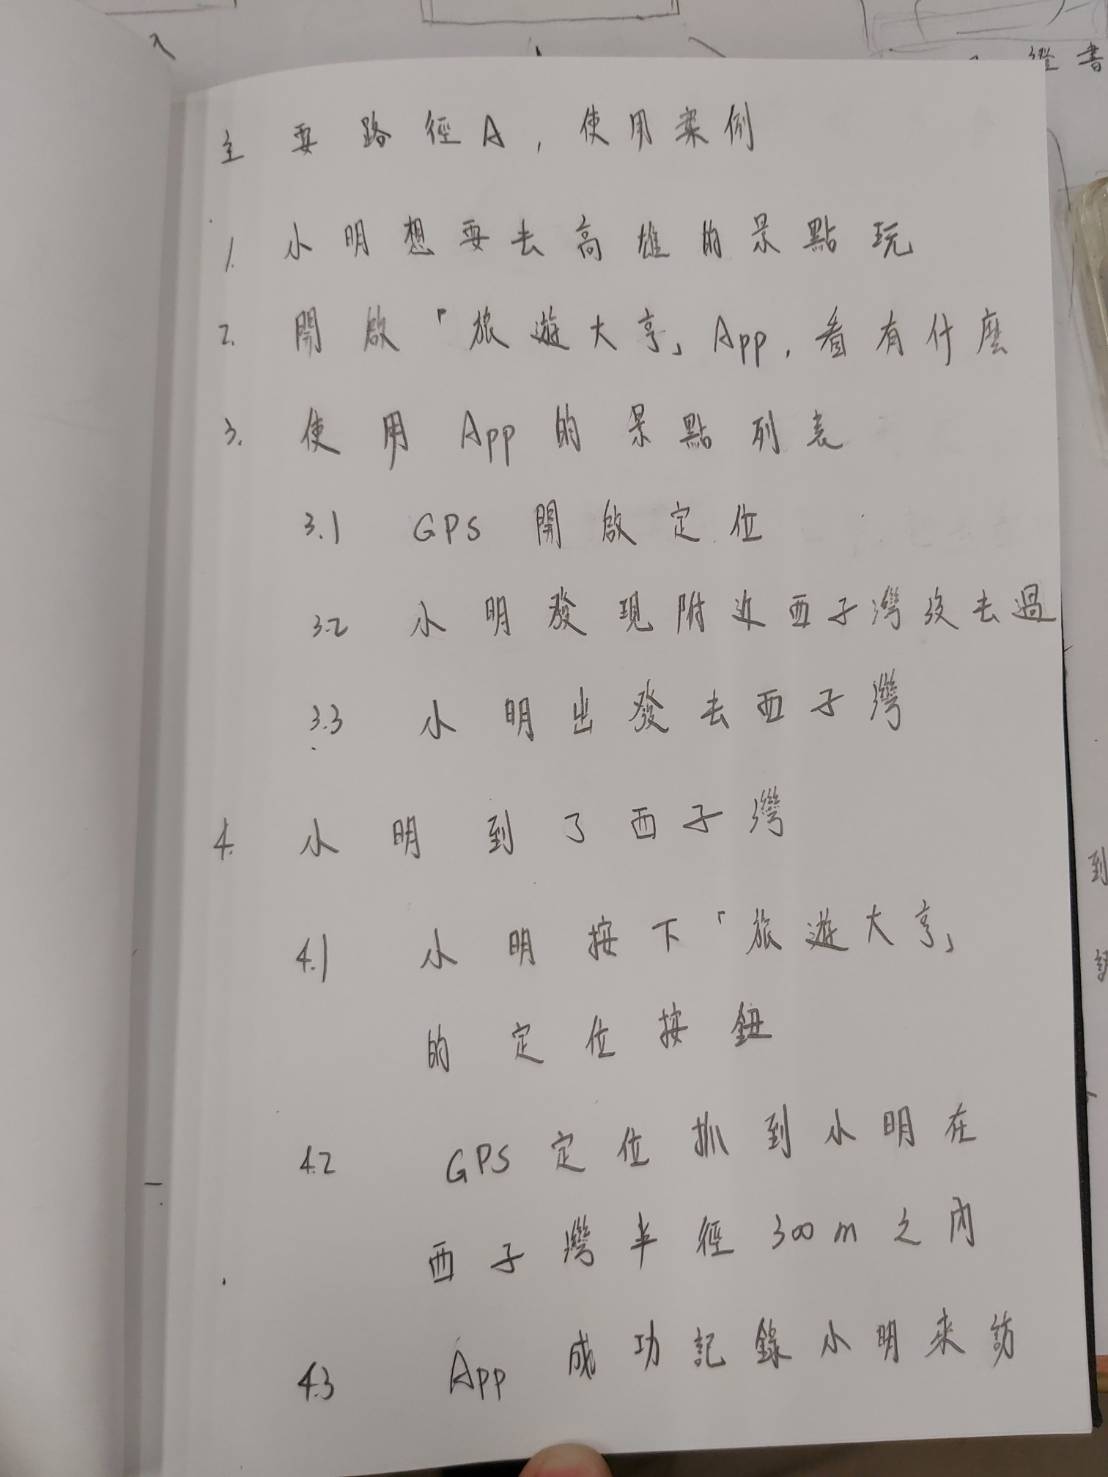 主要路徑A，使用案例
1. 小明想要去高雄的景點玩
2. 開啟「旅遊大亨」App，看有什麼
3. 使用App的景點列表
3.1 GPS開啟定位
3.2 小明發現附近西子灣沒去過
3.3 小明出發去西子灣
4. 小明到了西子灣
4.1 小明按下「旅遊大亨」
的定位按鈕
4.2 GPS定位抓到小明在
西子灣半徑300m之內
4.3 App成功記錄小明來訪
書
到